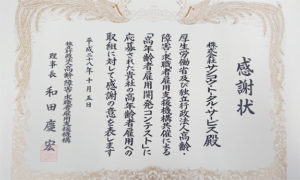 感謝状
株式会社サンヨウメタルサービス殿
厚生労働省及び独立行政法人高齢・
障害・求職者雇用支援機構共催による
「高年齢者雇用開発コンテスト」に
応募された貴社の高年齢者雇用への
取組に対して感謝の意を表します
平成二十八年十月五日
独立行政法人高齢・障害・求職者雇用支援機構
理事長 和田慶宏